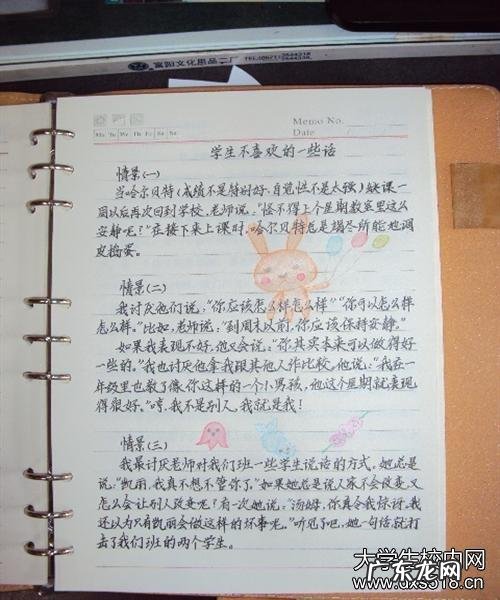 富阳文化用品二厂
Memo No.
Mo Tu We Th Fr Sa Su
Date
学生不喜欢的一些话
情景(一)
当哈尔贝特(成绩不是特别好,自觉性不是太强)缺课一
周以后再次回到学校,老师说:“怪不得上个星期教室里这么
安静呢?”在接下来上课时,哈尔贝特总是竭尽所能地调
皮捣蛋。
情景(二)
我讨厌他们说:“你应该怎么样怎么样”“你可以怎么样
怎么样。”比如,老师说:“到周末以前,你应该保持安静。”
如果我表现不好,他又会说:“你其实本来可以做得好
一些的。”我也讨厌他拿我跟其他人作比较。他说:“我在一
年级里也教了像你这样的一个小男孩,他这个星期就表现
得很好。”哼,我不是别人,我就是我!
情景(三)
我最讨厌老师对我们班一些学生说话的方式。她总是
说:“凯丽,我真不想不管你了。”如果她总是说人家不会改变,又
怎么会让别人改变呢?有一次她说:“汤姆,你真令我惊讶,我
还以为只有凯丽会做这样的坏事呢。”听见了吧,她一句话就打
击了我们班的两个学生。
大学生校内网
广东龙网
www.dxs518.cn